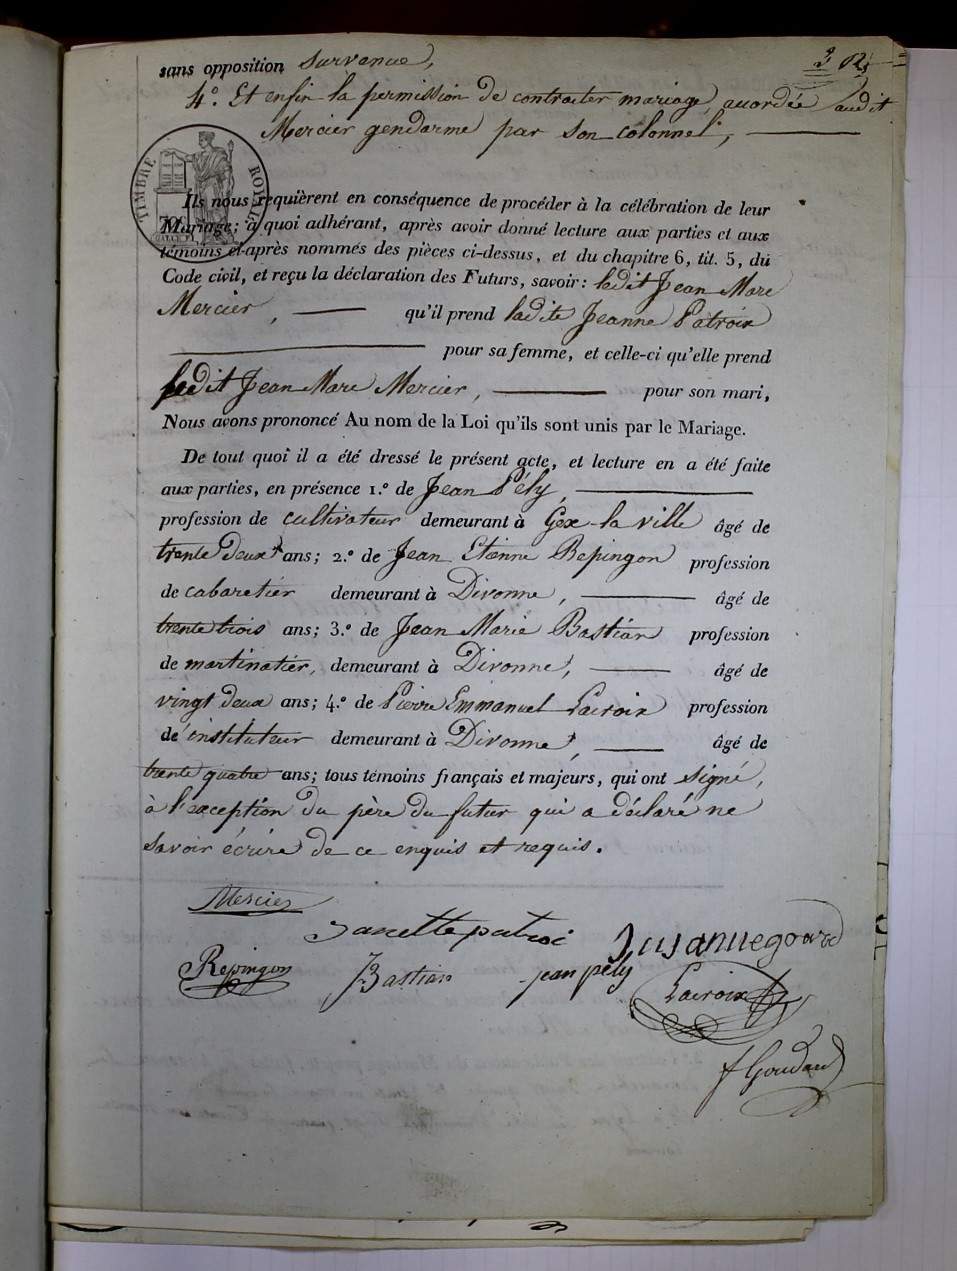 sans opposition survenue,
4.° Et enfin la permission de contracter mariage, accordée audit
Mercier gendarme par son colonnel,
TIMBRE ROYAL
Ils nous requièrent en conséquence de procéder à la célébration de leur
Mariage; à quoi adhérant, après avoir donné lecture aux parties et aux
témoins ci-après nommés des pièces ci-dessus, et du chapitre 6, tit. 5, du
Code civil, et reçu la déclaration des Futurs, savoir: ledit Jean Marc
Mercier, qu'il prend ladite Jeanne Patroix
pour sa femme, et celle-ci qu'elle prend
ledit Jean Marc Mercier, pour son mari,
Nous avons prononcé Au nom de la Loi qu'ils sont unis par le Mariage.
De tout quoi il a été dressé le présent acte, et lecture en a été faite
aux parties, en présence 1.° de Jean Pély,
profession de cultivateur demeurant à Gex-la-ville âgé de
trente deux ans; 2.° de Jean Etienne Repingon profession
de cabaretier demeurant à Divonne, âgé de
trente trois ans; 3.° de Jean Marie Bastian profession
de martinatier, demeurant à Divonne, âgé de
vingt deux ans; 4.° de Pierre Emmanuel Lacroix profession
de instituteur demeurant à Divonne, âgé de
trente quatre ans; tous témoins français et majeurs, qui ont signé,
à l'exception du père du futur qui a déclaré ne
savoir écrire de ce enquis et requis.
Mercier
Janette patroi
Repingon
JBastian
jean pély
Lacroix
f Goudard